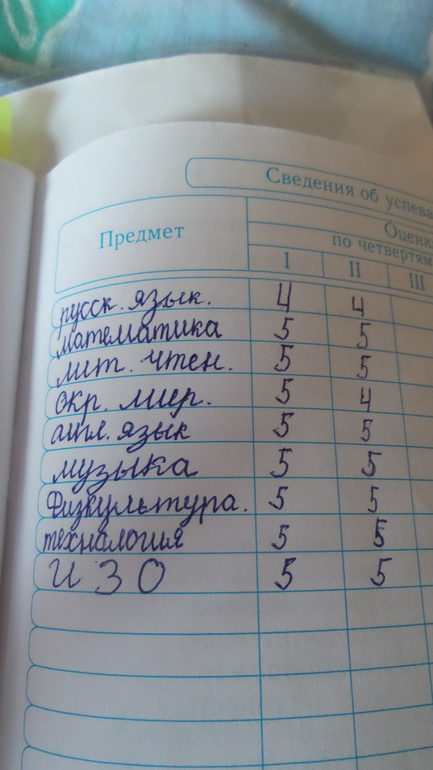 Сведения об успева
Предмет
Оценк
по четвертям
I II III
русск. язык. 4 4
математика 5 5
лит. чтен. 5 5
окр. мир. 5 4
англ. язык 5 5
музыка 5 5
Физкультура. 5 5
технология 5 5
ИЗО 5 5